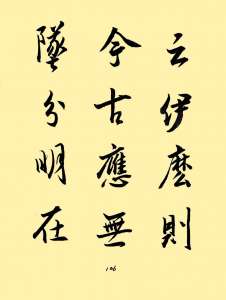 云伊麽則
今古應無
墜分明在
106